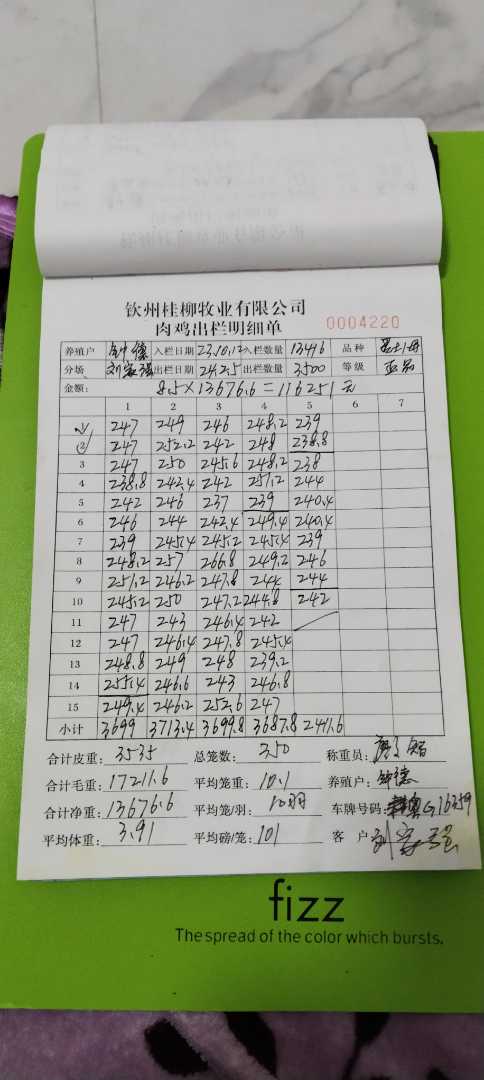 钦州桂柳牧业有限公司
肉鸡出栏明细单 0004220
养殖户 钟德 入栏日期 23.10.12 入栏数量 13416 品种
分场 出栏日期 24.2.5 出栏数量 3500 等级 正品
金额: 8.5×13676.6=116251元
1 2 3 4 5 6 7
1 247 249 246 248.2 239
2 247 252.2 242 248 238.8
3 247 250 245.6 248.2 238
4 238.8 242.4 242 251.2 244
5 242 246 237 239 240.4
6 246 244 242.4 249.4 240.4
7 239 245.4 245.2 245.4 239
8 248.2 257 266.8 249.2 246
9 251.2 246.2 247.8 244 244
10 245.2 250 247.2 244.8 242
11 247 243 246.4 242
12 247 246.4 247.8 245.4
13 248.8 249 248 239.2
14 255.4 246.6 243 246.8
15 249.4 246.2 252.6 247
小计 3699 3713.4 3699.8 3687.8 2411.6
合计皮重: 3535 总笼数: 350 称重员:
合计毛重: 17211.6 平均笼重: 10.1 养殖户: 钟德
合计净重: 13676.6 平均笼/羽: 10羽 车牌号码: G16359
平均体重: 3.91 平均磅/笼: 101 客户
fizz
The spread of the color which bursts.